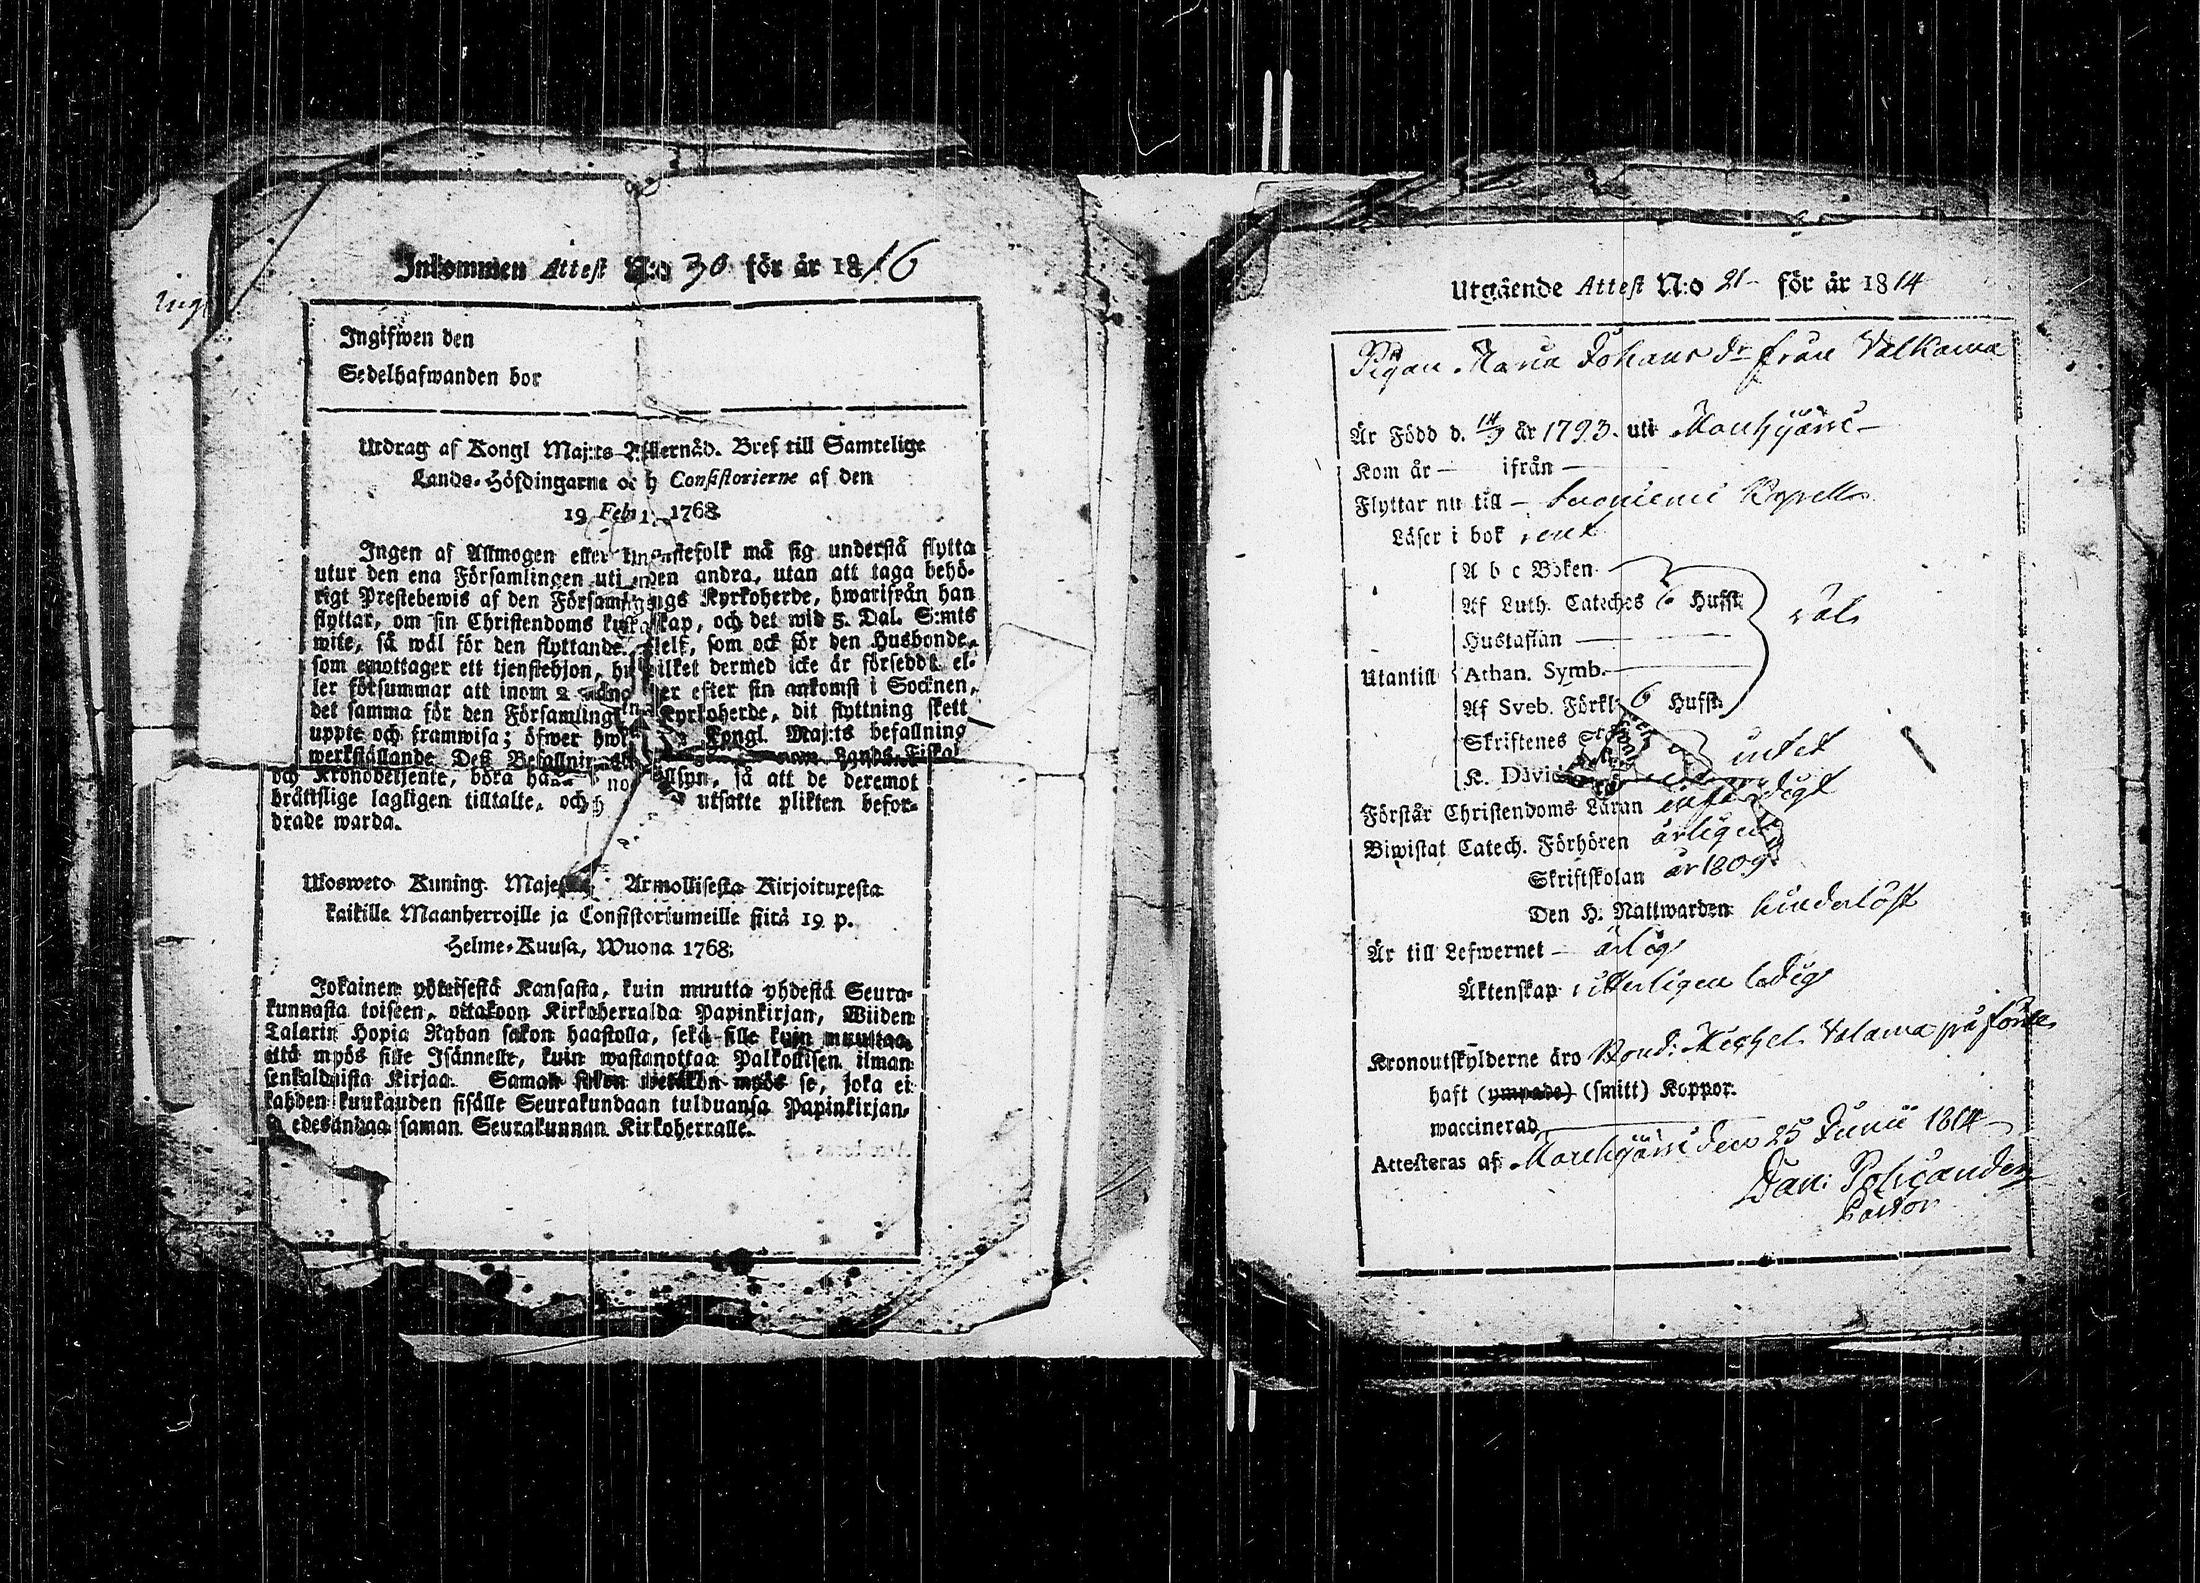 Inkommen Attest N:o 30 för år 1816
Ingifwen den
Sedelhafwanden bor
Utdrag af Kongl Maj:ts Allernåd. Bref till Samtelige
Lands-Höfdingarne och Consistorierne af den
19 Febr. 1768
Ingen af Allmogen eller folk må sig understå flytta
utur den ena Församlingen uti den andra, utan att taga behö-
rigt Prestebewis af den Församlings Kyrkoherde, hwarifrån han
flyttar, om sin Christendoms kunskap, och det wid 5. Dal. S:mts
wite, så wäl för den flyttande sielf, som ock för den Husbonde,
som emottager ett tjenstehjon, hwilket dermed icke är försedt el-
ler försummar att inom 2 månader efter sin ankomst i Socknen,
det samma för den Församlings Kyrkoherde, dit flyttning skett
uppte och framwisa; öfwer Kongl. Maj:ts befallning
werkställande Deß Lands-Fiskal
och Kronobetjente, böra hafwa noga så att de deremot
bråtslige lagligen tilltalte, och utsatte plikten befor-
drade warda.
Uloswето Kuning. Majest: Armollisesta Kirjoituxesta
kaikille Maanherroille ja Consistoriumeille siitä 19 p.
Helme-Kuusa, Wuona 1768.
Jokainen yhteisestä Kansasta, kuin muutta yhdestä Seura-
kunnasta toiseen, ottakoon Kirkoherralda Papinkirjan, Wiiden
Talarin Hopia Rahan sakon haastolla, sekä sille kuin muuttaa,
että myös sille Isännelle, kuin wastanottaa Palkollisen ilman
senkaldaista Kirjaa. Saman sakon wetäkön myös se, joka ei
kahden kuukauden sisälle Seurakundaan tulduansa Papinkirjan-
sa edesänhaa saman Seurakunnan Kirkoherralle.
Utgående Attest N:o 21 för år 1814
Pigan Maria Johans dr från Valkama
Är Född d. 14/9 år 1793. uti
Kom år — ifrån —
Flyttar nu till — Suoniemi Capell
Läser i bok rent
A b c Boken
Af Luth. Cateches 6 Hufst.
Hustaflan
väl
Utantill Athan. Symb.
Af Sveb. Förkl. 6 Hufst.
Skriftenes
intet
K. David
Förstår Christendoms Läran enfaldigt
Biwistat Catech. Förhören årligen
Skriftskolan år 1809
Den H. Nattwarden hinderlöst
Är till Lefwernet — ärlig
Äktenskap: ledig
Kronoutskylderne äro
haft (ympade) (smitt) Koppor.
waccinerad
Attesteras af den 25 Junii 1814
Dan: Polviander
Pastor